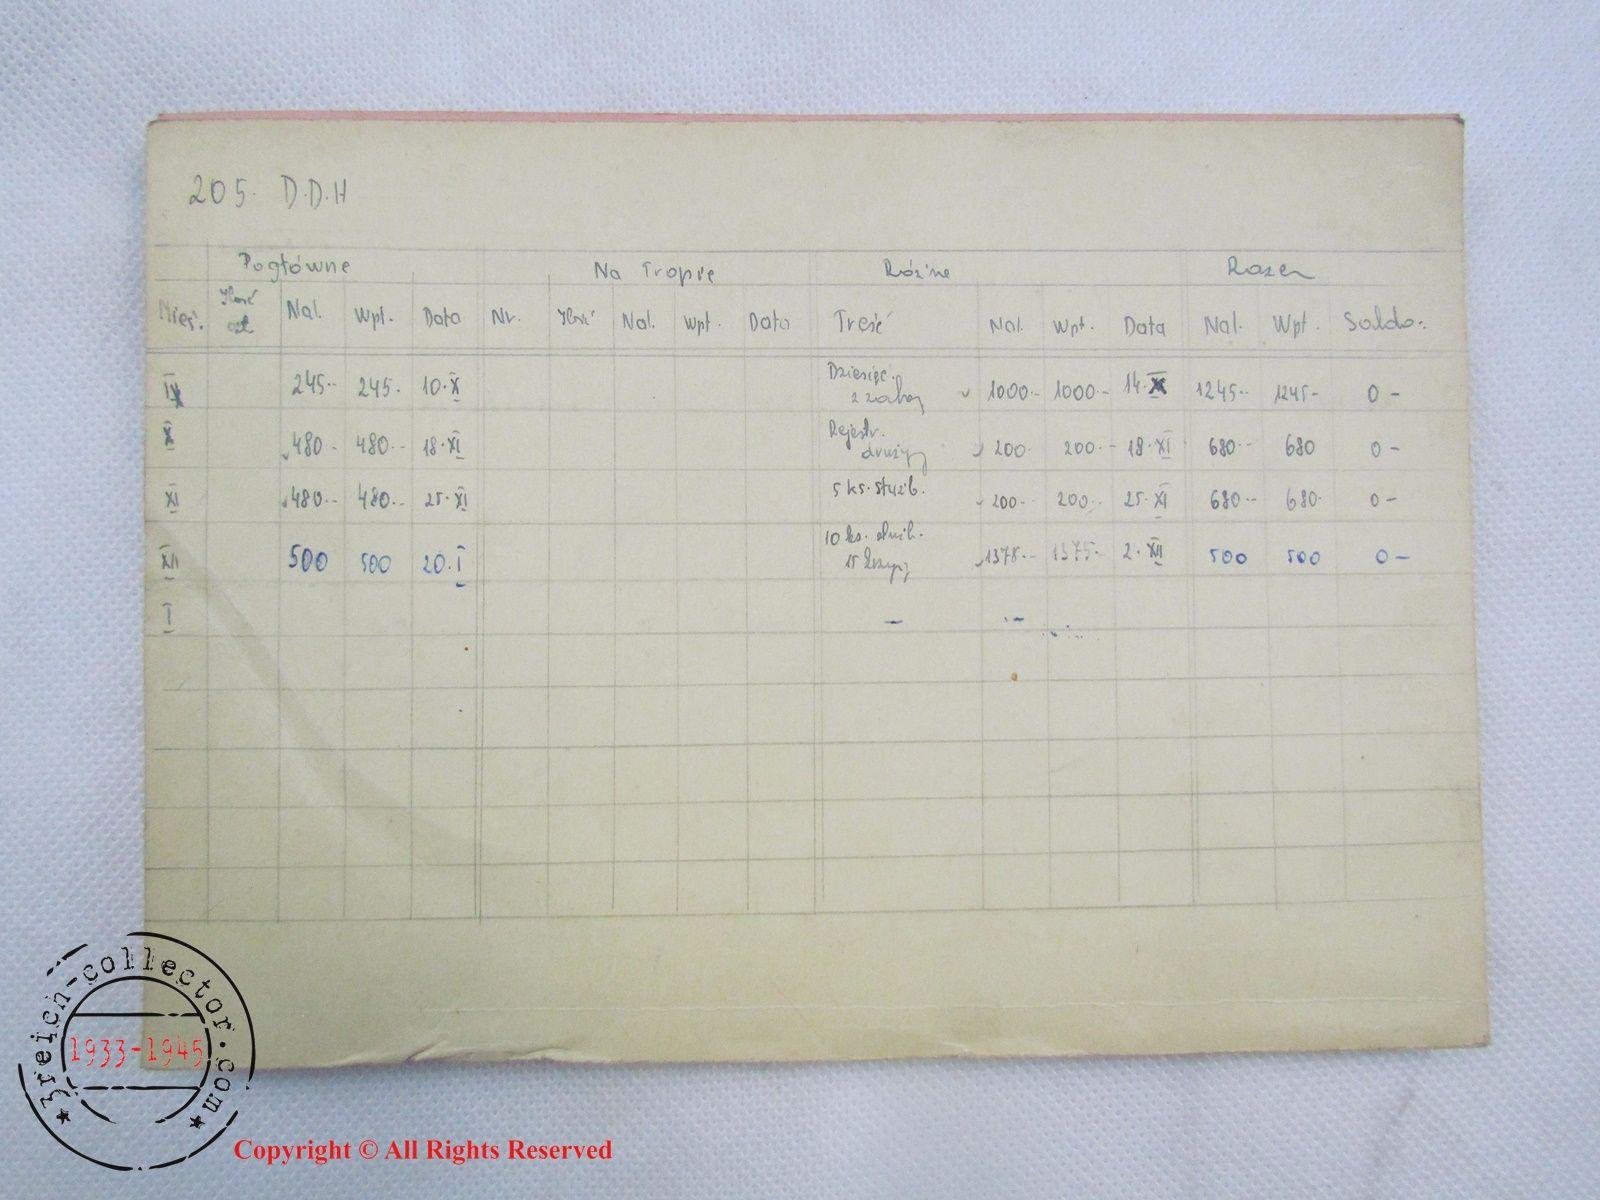 205. D.D.H
Pogłówne Na Tropie Różne Razem
Mieś. Ilość czł Nal. Wpł. Data Nr. Ilość Nal. Wpł. Data Treść Nal. Wpł. Data Nal. Wpł. Saldo:
Dziesięć.
IX 245.- 245. 10.XI 1000.- 1000.- 14.XI 1245.- 1245- 0-
Rejestr.
X 480- 480.- 18.XI drużyn 200. 200.- 18.XI 680.- 680 0-
XI 480.- 480.- 25.XI 5 ks. służb. 200.- 200.- 25.XI 680.- 680. 0-
10 ks. służb.
XII 500 500 20.I 15 1375.- 1375.- 2.XII 500 500 0-
I - -
3reich-collector.com
1933-1945
Copyright © All Rights Reserved